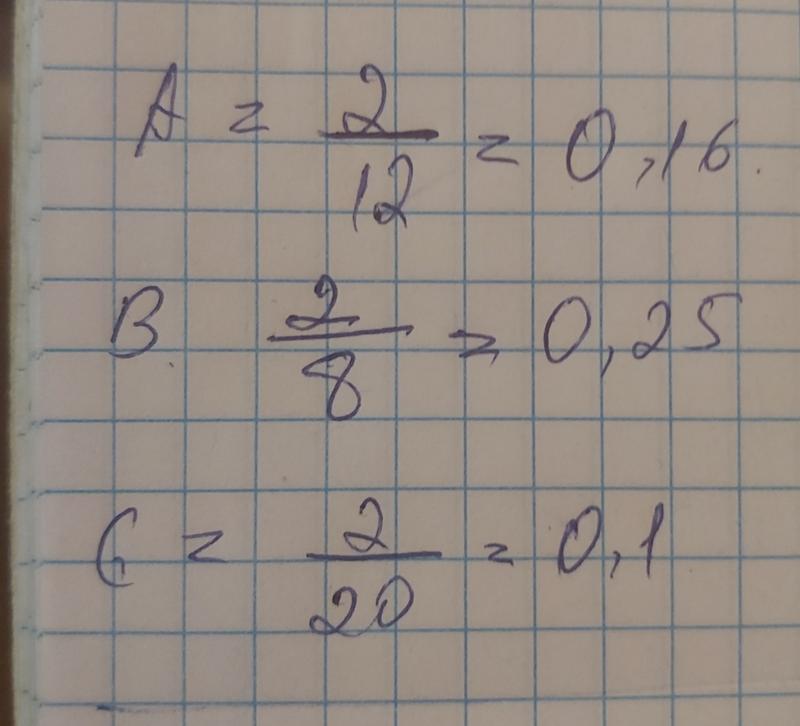 A = 2/12 = 0,16.
B. 2/8 = 0,25
C = 2/20 = 0,1